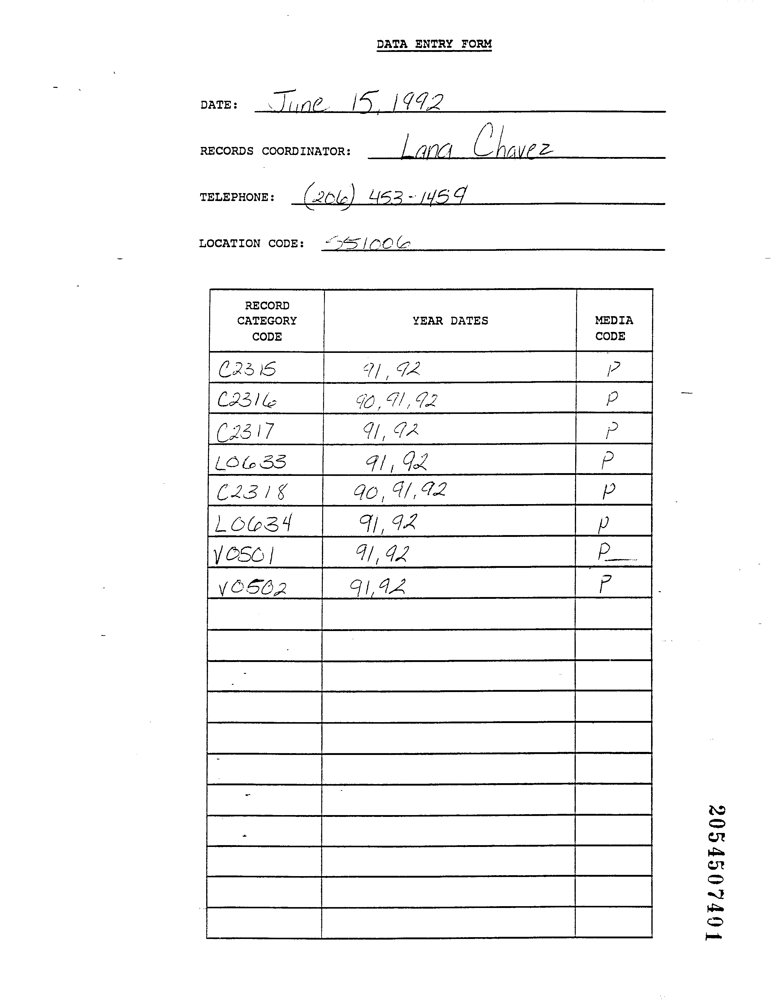 DATA ENTRY FORM
DATE: June 15, 1992
RECORDS COORDINATOR: Lana Chavez
TELEPHONE: (206) 453-1459
LOCATION CODE: 551006
RECORD CATEGORY CODE YEAR DATES MEDIA CODE
C2315 91, 92 P
C2316 90, 91, 92 P
C2317 91, 92 P
L0633 91, 92 P
C2318 90, 91, 92 P
L0634 91, 92 P
V0501 91, 92 P
V0502 91, 92 P
2054507401